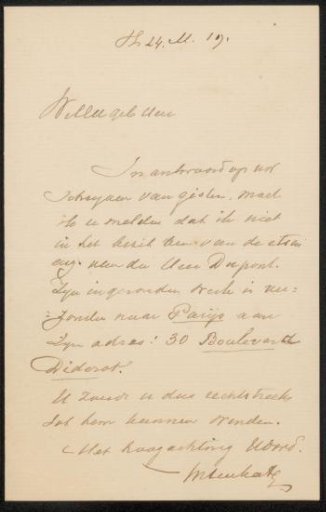 24. M. 19.
WelEdelgeb Heer
In antwoord op uw
schrijven van gisteren, moet
ik u melden dat ik niet
in het bezit ben van de etsen
van den Heer Dupont.
Zijn ingezonden werk is ver-
zonden naar Parijs aan
zijn adres: 30 Boulevard
Diderot.
U zoudt u dus rechtstreeks
tot hem kunnen wenden.
Met hoogachting